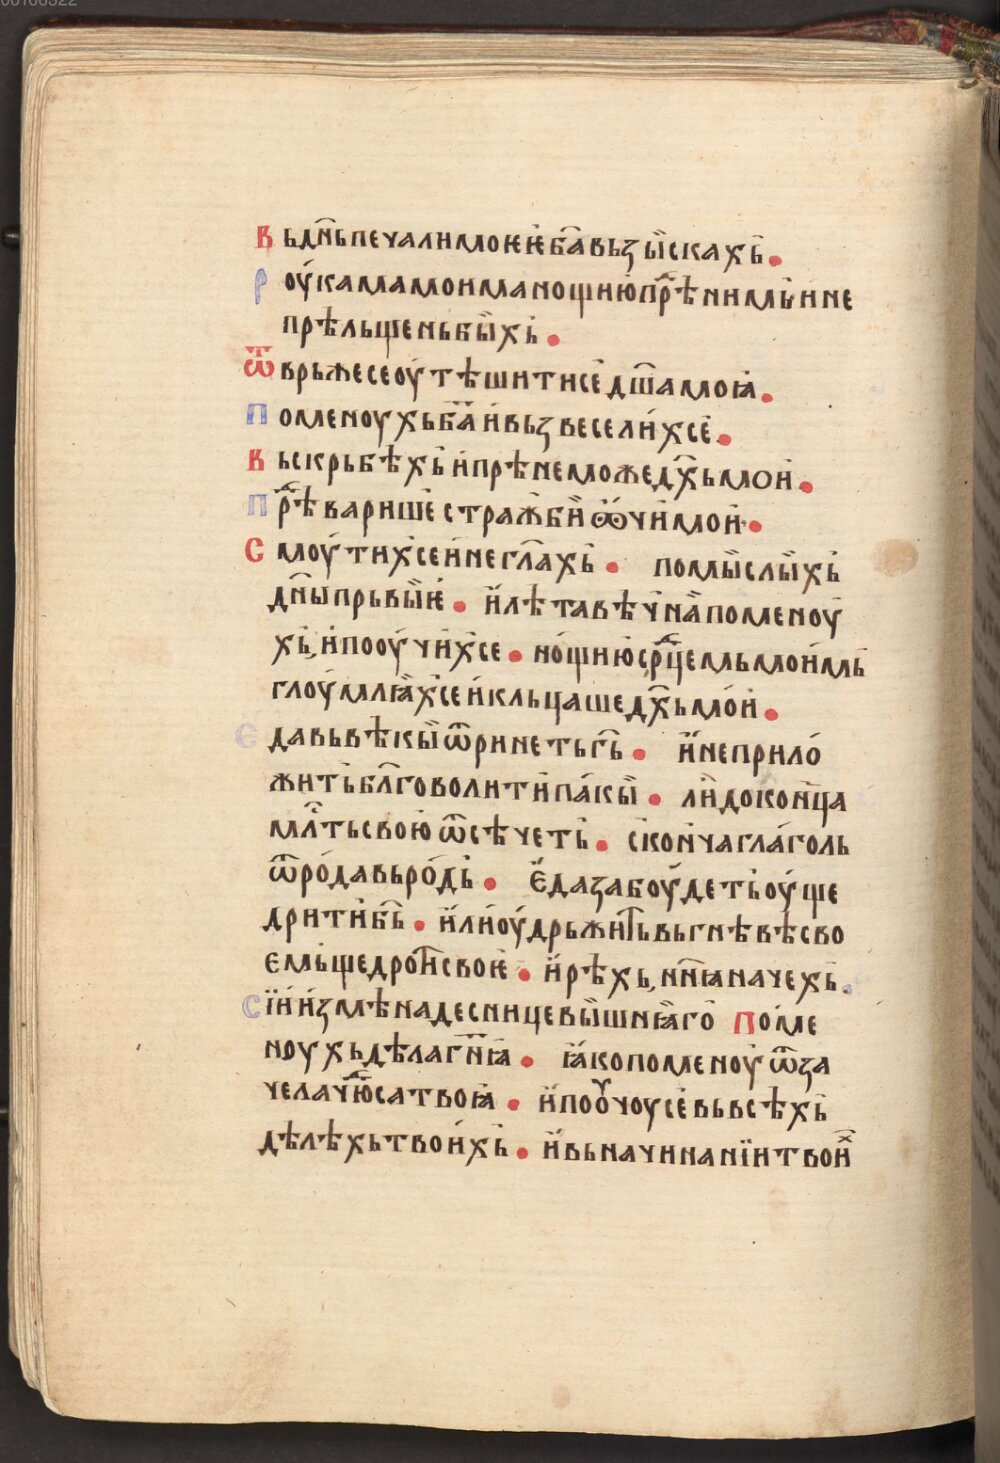 00106322
Вь дн҃ь печали моѥѥ ба҃ вьзыскахь.
Роукама моима нощию прѣ нимь и не
прѣльщень быхь.
Ѿврьже се оутѣшити се дш҃а моꙗ.
Поменоухь ба҃ и вьзвеселих се.
Вьскрьбѣхь и прѣнеможе дх҃ь мои.
Прѣварише стражби ѡчи мои.
Смоутих се и не гл҃ахь. помыслыхь
дн҃ы прьвыѥ. и лѣта вѣчнаа поменоу
хь, и пооучих се. нощию срⷣцемь моимь
глоумлꙗах се и кльцаше дх҃ь мои.
Єда вь вѣкы ѿринеть гь҃. и не прило
жить бл҃говолити пакы. ли до конца
млⷭть свою ѿсѣчеть. сконча глаголь
ѿ рода вь родь. Єда забоудеть оуще
дрити бь҃. или оудрьжить вь гнѣвѣ сво
ємь щедроти своѥ. и рѣхь, нн҃ꙗ начехь.
Сїи измѣна десницє вышнꙗаго Поме
ноухь дѣла гн҃ꙗ. ꙗко поменоу ѿ за
чела чюⷣса твоꙗ. и пооучоу се вь всѣхь
дѣлѣхь твоихь. и вь начинанїи твоиⷯ